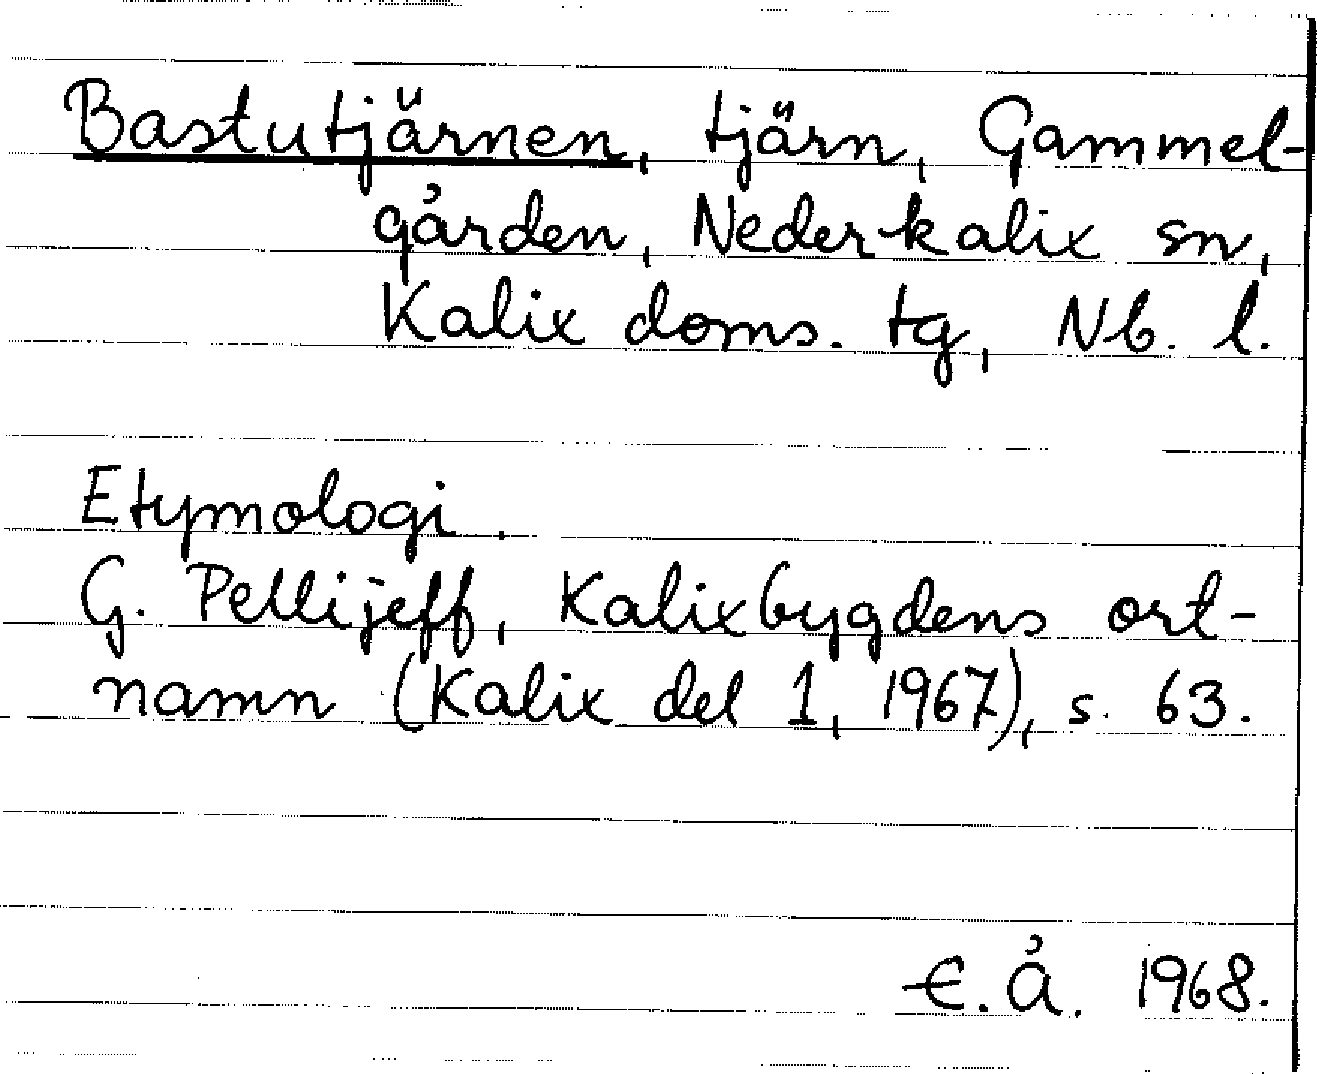 Bastutjärnen, tjärn, Gammel-
gården, Nederkalix sn,
Kalix doms. tg, Nb. l.
Etymologi.
G. Pellijeff, Kalixbygdens ort-
namn (Kalix del 1, 1967), s. 63.
E.Å. 1968.